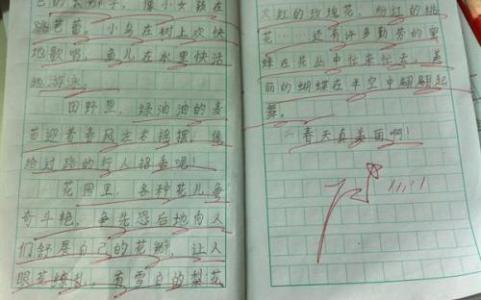 像小女孩在
跳芭蕾，小鸟在树上欢快
地歌唱，鱼儿在水里快活
地游泳。
田野里，绿油油的麦
苗迎着春风左右摇摆，像
给过路的行人招手呢！
花园里，各种花儿争
奇斗艳，争先恐后地向人
们舒展自己的花瓣，让人
眼花缭乱，有雪白的梨花
火红的玫瑰花，粉红的桃
花……还有许多勤劳的蜜
蜂在花丛中忙来忙去，美
丽的蝴蝶在半空中翩翩起
舞。
春天真美丽啊！